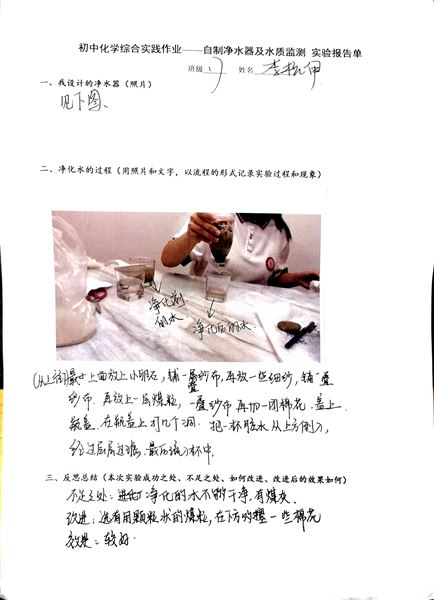 初中化学综合实践作业——自制净水器及水质监测 实验报告单
班级 姓名 李
一、我设计的净水器（照片）
见下图、
二、净化水的过程（用照片和文字，以流程的形式记录实验过程和现象）
净化前
的水
净化后的水.
(从上往下)最上面放上小明石，铺一层纱布，再放一些细纱，铺一叠
纱布.再放上一层煤粒，一叠纱布再加一团棉花.盖上
瓶盖.在瓶盖上打几个洞.把一杯脏水从上方倒入，
经过层层过滤.最后流入杯中.
三、反思总结（本次实验成功之处、不足之处、如何改进、改进后的效果如何）
不足之处：净化的水不够干净，有煤灰.
改进：选有用颗粒状的煤粒，在下方一些棉花
效果：较好.